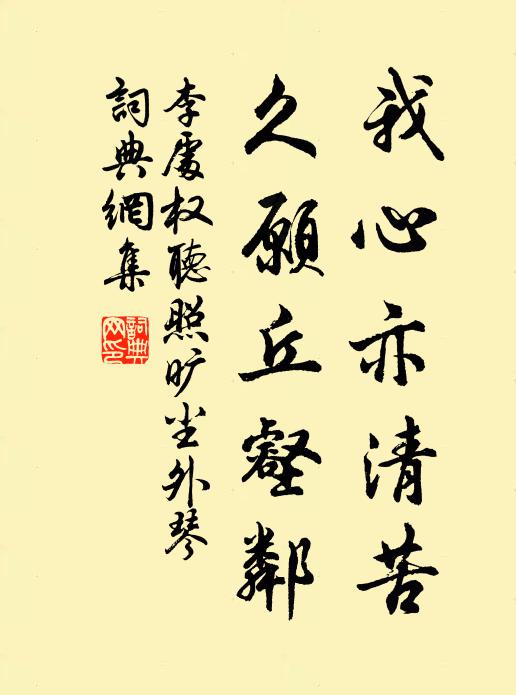 我心亦清苦
久願丘壑鄰
李處权聽照旷尘外琴
詞典網集
詞典
网印